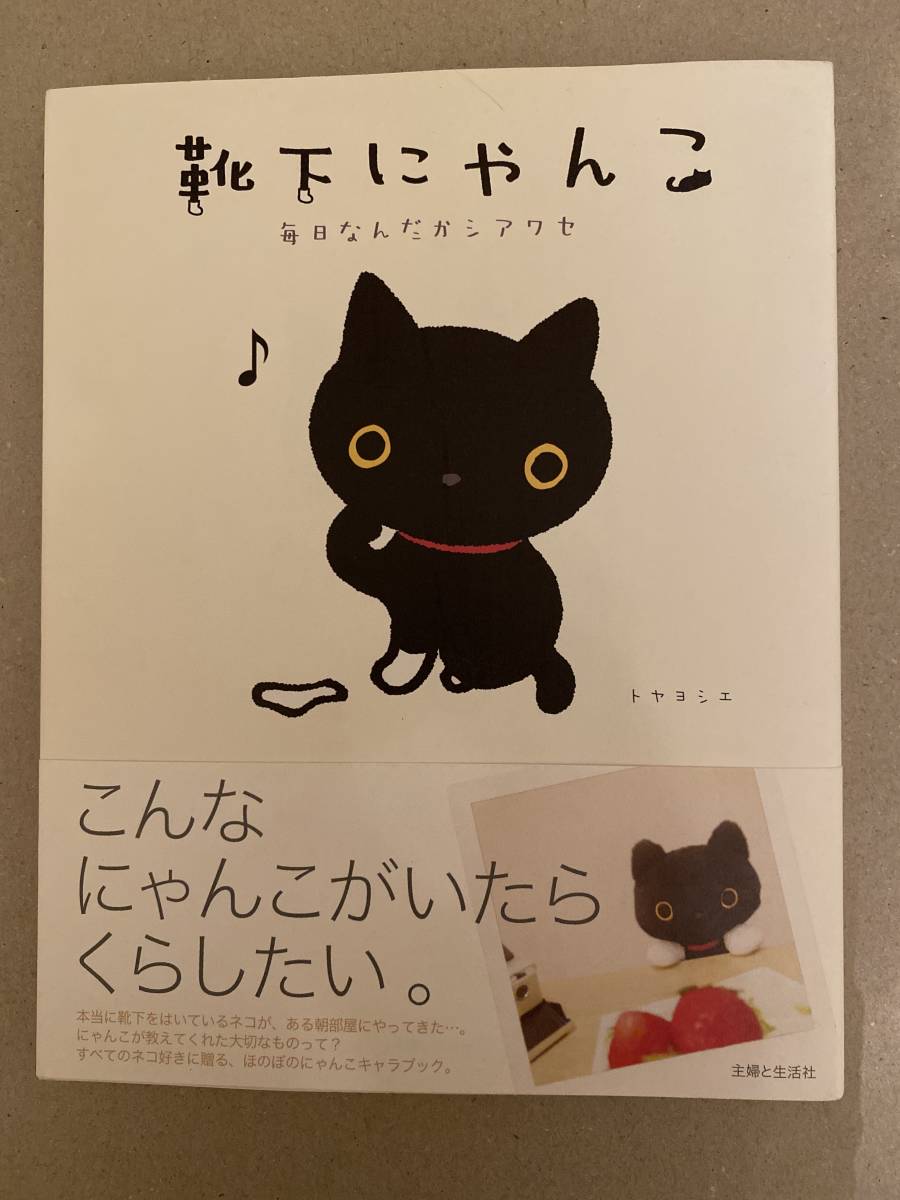 靴下にゃんこ
毎日なんだかシアワセ
トヤヨシエ
こんな
にゃんこがいたら
くらしたい。
本当に靴下をはいているネコが、ある朝部屋にやってきた…。
にゃんこが教えてくれた大切なものって？
すべてのネコ好きに贈る、ほのぼのにゃんこキャラブック。
主婦と生活社